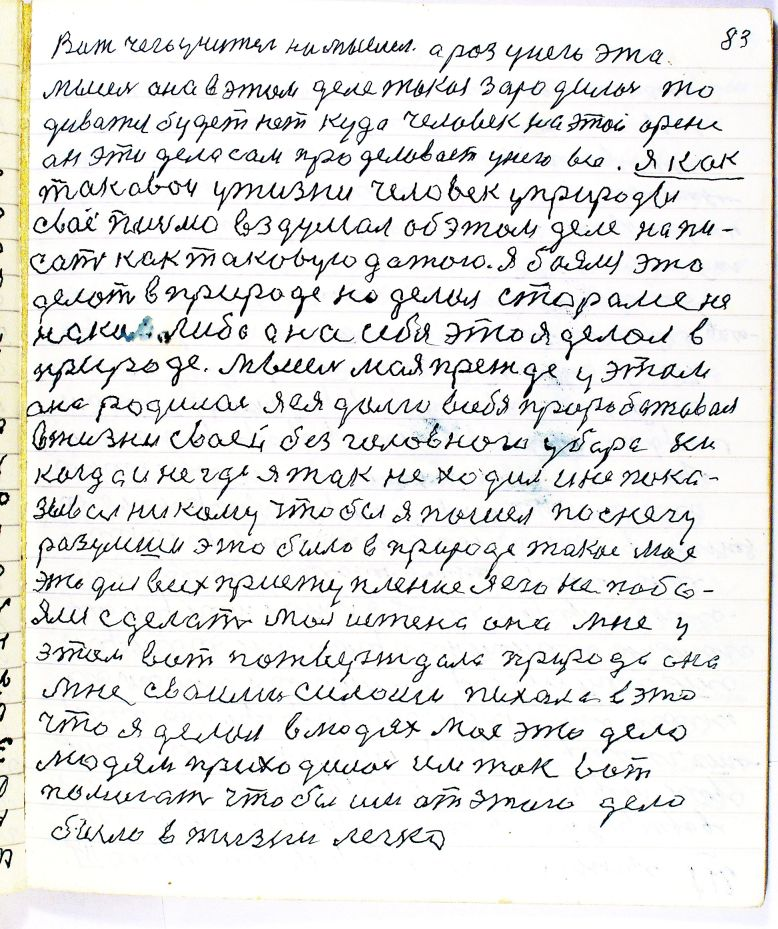 83
Вот чего учител на мыслел. а роз унего эта
мысля она в этом деле такая зародилася то
диватся будет нет куда человек на этой орене
ан это дела сам проделовает унего все. Я как
таковой ужизни человек уприроды
своё писмо вздумал об этом деле напи-
сать как таковую до того. Я боялся это
делат в природе но делал старался не
накам либо а на себя это я делал в
природе. мысля моя прежде у этом
она родилася я ея долго всебя приробатовал
вжизни своей без головного убора ни
когда и не где я так не ходил и не пока-
зывал никому чтобы я пошел по снегу
разумши это было в природе такое мое
это для всех приступление я его не побо-
ялся сделать моя истена она мне у
этом вот потверждала природа она
мне своими силоми пихала в это
что я делал в людях мое это дело
людям приходилося им так вот
помогат чтобы им от этого дело
было в жизни легко